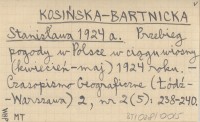 KOSIŃSKA-BARTNICKA
Stanisława 1924 a. Przebieg
pogody w Polsce w ciągu wiosny
(kwiecień-maj) 1924 roku.
Czasopismo Geograficzne (Łódź-
-Warszawa) 2, nr 2(5): 238-240.
MT